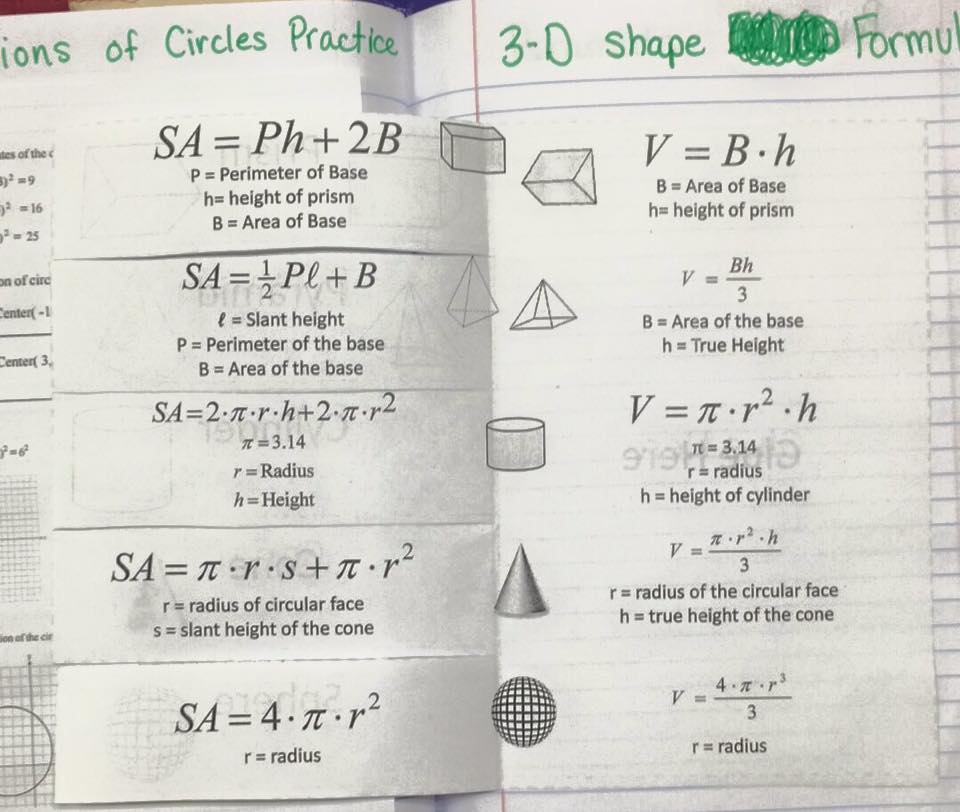 ions of Circles Practice
3-D shape Formul
tes of the c
)² = 9
)² = 16
)² = 25
on of circ
Center( -1
Center( 3,
)²=6²
ion of the cir
SA = Ph + 2B
P = Perimeter of Base
h= height of prism
B = Area of Base
SA = ½ Pℓ + B
ℓ = Slant height
P = Perimeter of the base
B = Area of the base
SA=2·π·r·h+2·π·r²
π=3.14
r = Radius
h = Height
SA = π·r·s + π·r²
r = radius of circular face
s = slant height of the cone
SA = 4·π·r²
r = radius
V = B·h
B = Area of Base
h= height of prism
V = Bh/3
B = Area of the base
h = True Height
V = π·r²·h
π = 3.14
r = radius
h = height of cylinder
V = π·r²·h/3
r = radius of the circular face
h = true height of the cone
V = 4·π·r³/3
r = radius
Pyramid
Cylinder
Glue Here
Cone
Sphere